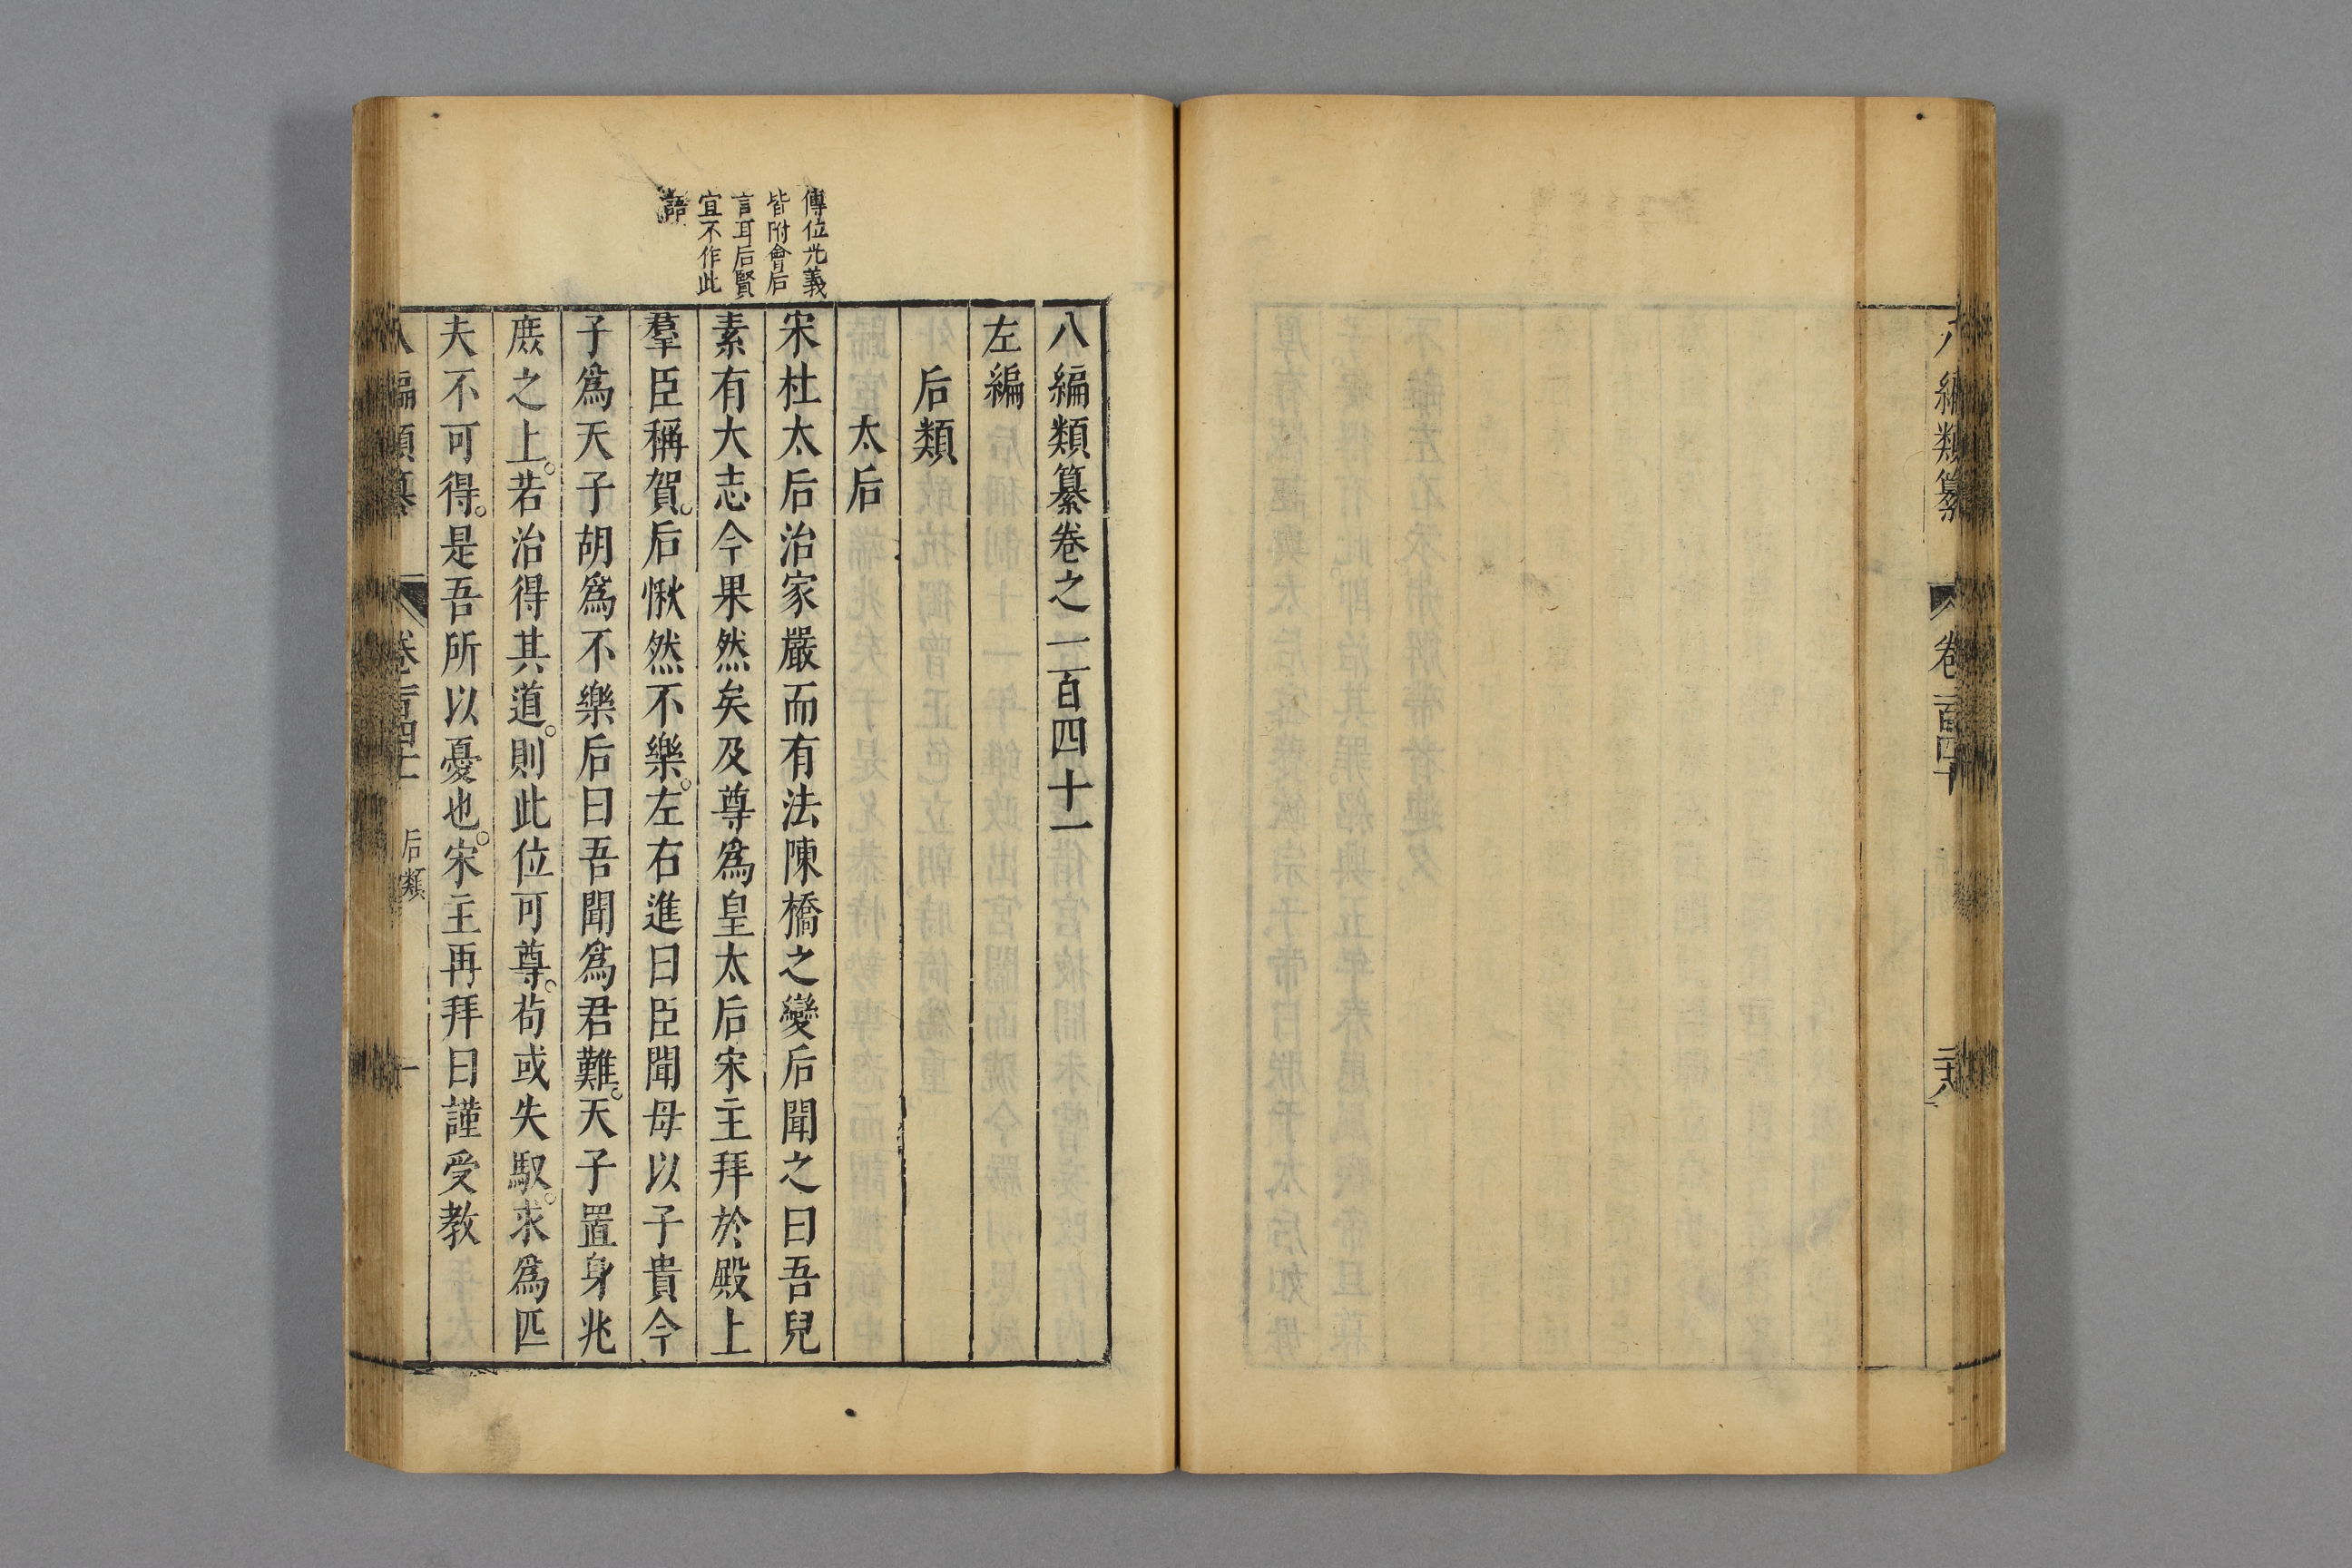 八編類纂
卷一百四十
二十八
八編類纂卷之一百四十一
左編
后類
太后
傳位光義
皆附會后
言耳后賢
宜不作此
語
宋杜太后治家嚴而有法陳橋之變后聞之曰吾兒
素有大志今果然矣及尊爲皇太后宋主拜於殿上
羣臣稱賀。后愀然不樂。左右進曰臣聞母以子貴今
子爲天子胡爲不樂后曰吾聞爲君難。天子置身兆
庻之上。若治得其道。則此位可尊。茍或失馭。求爲匹
夫不可得。是吾所以憂也。宋主再拜曰謹受教
八編類纂
卷一百四十一
后類
一